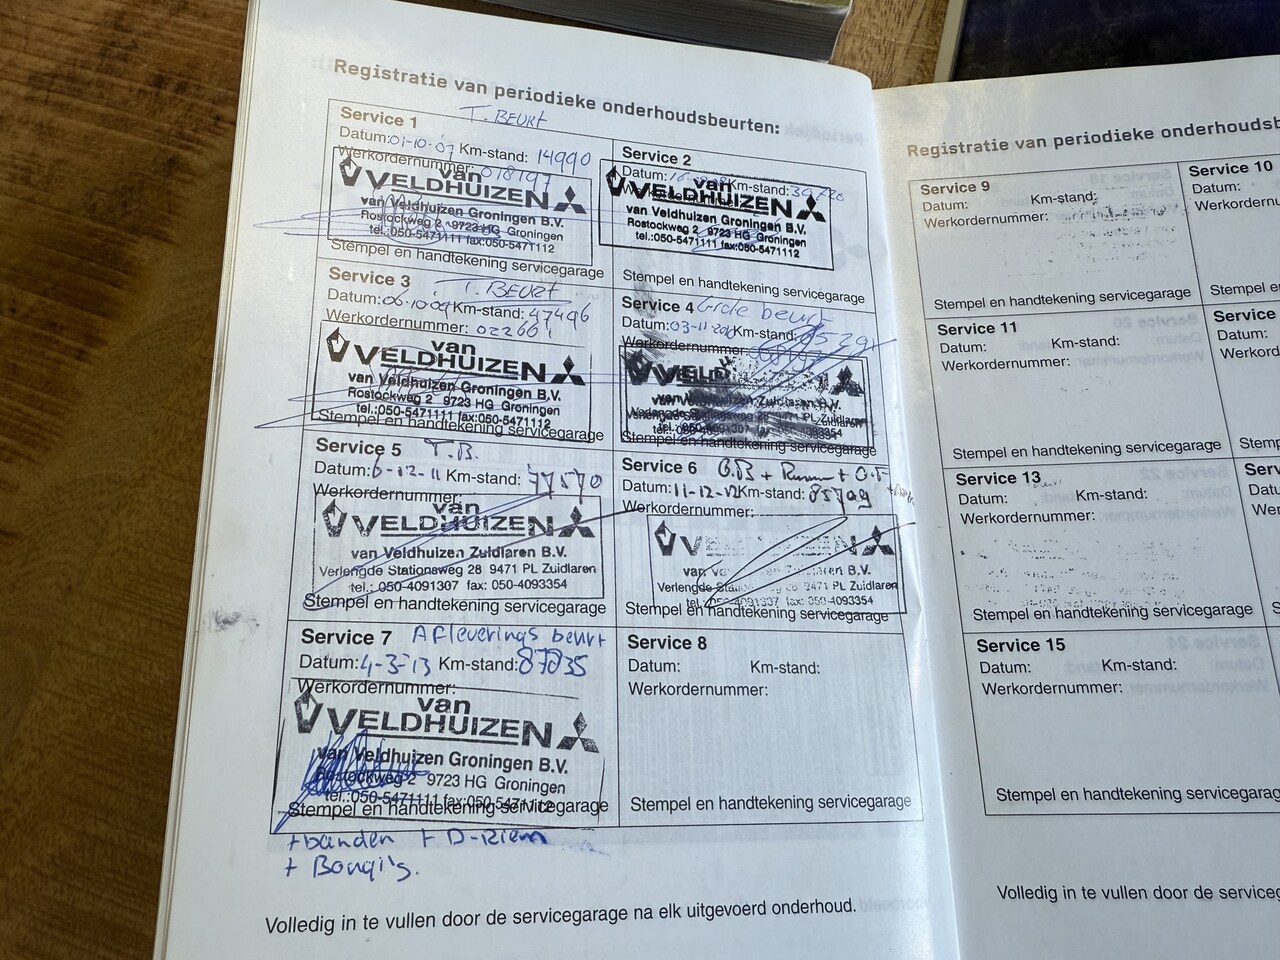 Registratie van periodieke onderhoudsbeurten:
Service 1 T. BEURT
Datum: 01-10-07 Km-stand: 14990
Werkordernummer: 018197
van
VELDHUIZEN
van Veldhuizen Groningen B.V.
Rostockweg 2 9723 HG Groningen
tel.:050-5471111 fax:050-5471112
Stempel en handtekening servicegarage
Service 2
Datum: Km-stand:
van
VELDHUIZEN
van Veldhuizen Groningen B.V.
Rostockweg 2 9723 HG Groningen
tel.:050-5471111 fax:050-5471112
Stempel en handtekening servicegarage
Service 3 T. BEURT
Datum: 06-10-09 Km-stand: 47496
Werkordernummer:
van
VELDHUIZEN
van Veldhuizen Groningen B.V.
Rostockweg 2 9723 HG Groningen
tel.:050-5471111 fax:050-5471112
Stempel en handtekening servicegarage
Service 4 Grote beurt
Datum: Km-stand:
Werkordernummer:
van Veldhuizen Zuidlaren B.V.
Verlengde Stationsweg 28 9471 PL Zuidlaren
tel.: 050-4091307 fax: 050-4093354
Stempel en handtekening servicegarage
Service 5 T.B.
Datum: 6-12-11 Km-stand: 77570
Werkordernummer:
van
VELDHUIZEN
van Veldhuizen Zuidlaren B.V.
Verlengde Stationsweg 28 9471 PL Zuidlaren
tel.: 050-4091307 fax: 050-4093354
Stempel en handtekening servicegarage
Service 6
Datum: 11-12-12 Km-stand: 85709
Werkordernummer:
B.V.
9471 PL Zuidlaren
tel. 050-4091307 fax: 050-4093354
Stempel en handtekening servicegarage
Service 7 Afleverings beurt
Datum: 4-3-13 Km-stand: 87835
Werkordernummer:
van
VELDHUIZEN
van Veldhuizen Groningen B.V.
Rostockweg 2 9723 HG Groningen
tel.:050-5471111 fax:050-5471112
Stempel en handtekening servicegarage
+ banden + D-Riem
+ Bougi's.
Service 8
Datum: Km-stand:
Werkordernummer:
Stempel en handtekening servicegarage
Volledig in te vullen door de servicegarage na elk uitgevoerd onderhoud.
Registratie van periodieke onderhoudsb
Service 9
Datum: Km-stand:
Werkordernummer:
Stempel en handtekening servicegarage
Service 10
Datum:
Werkordernu
Stempel en
Service 11
Datum: Km-stand:
Werkordernummer:
Stempel en handtekening servicegarage
Service
Datum:
Werkord
Stemp
Service 13
Datum: Km-stand:
Werkordernummer:
Stempel en handtekening servicegarage
Service 15
Datum: Km-stand:
Werkordernummer:
Stempel en handtekening servicegarage
Volledig in te vullen door de serviceg